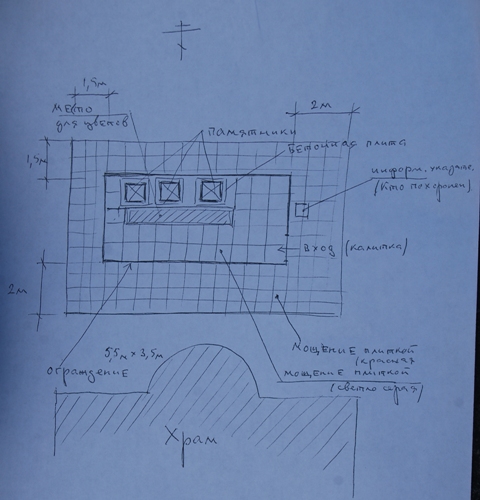 1,5м
2м
место
для цветов
памятники
бетонная плита
1,5м
информ. указате.
(кто похоронен)
вход (калитка)
2м
мощение плиткой
(красная
5,5м × 3,5м
ограждение
мощение плиткой
(светло серая)
Храм